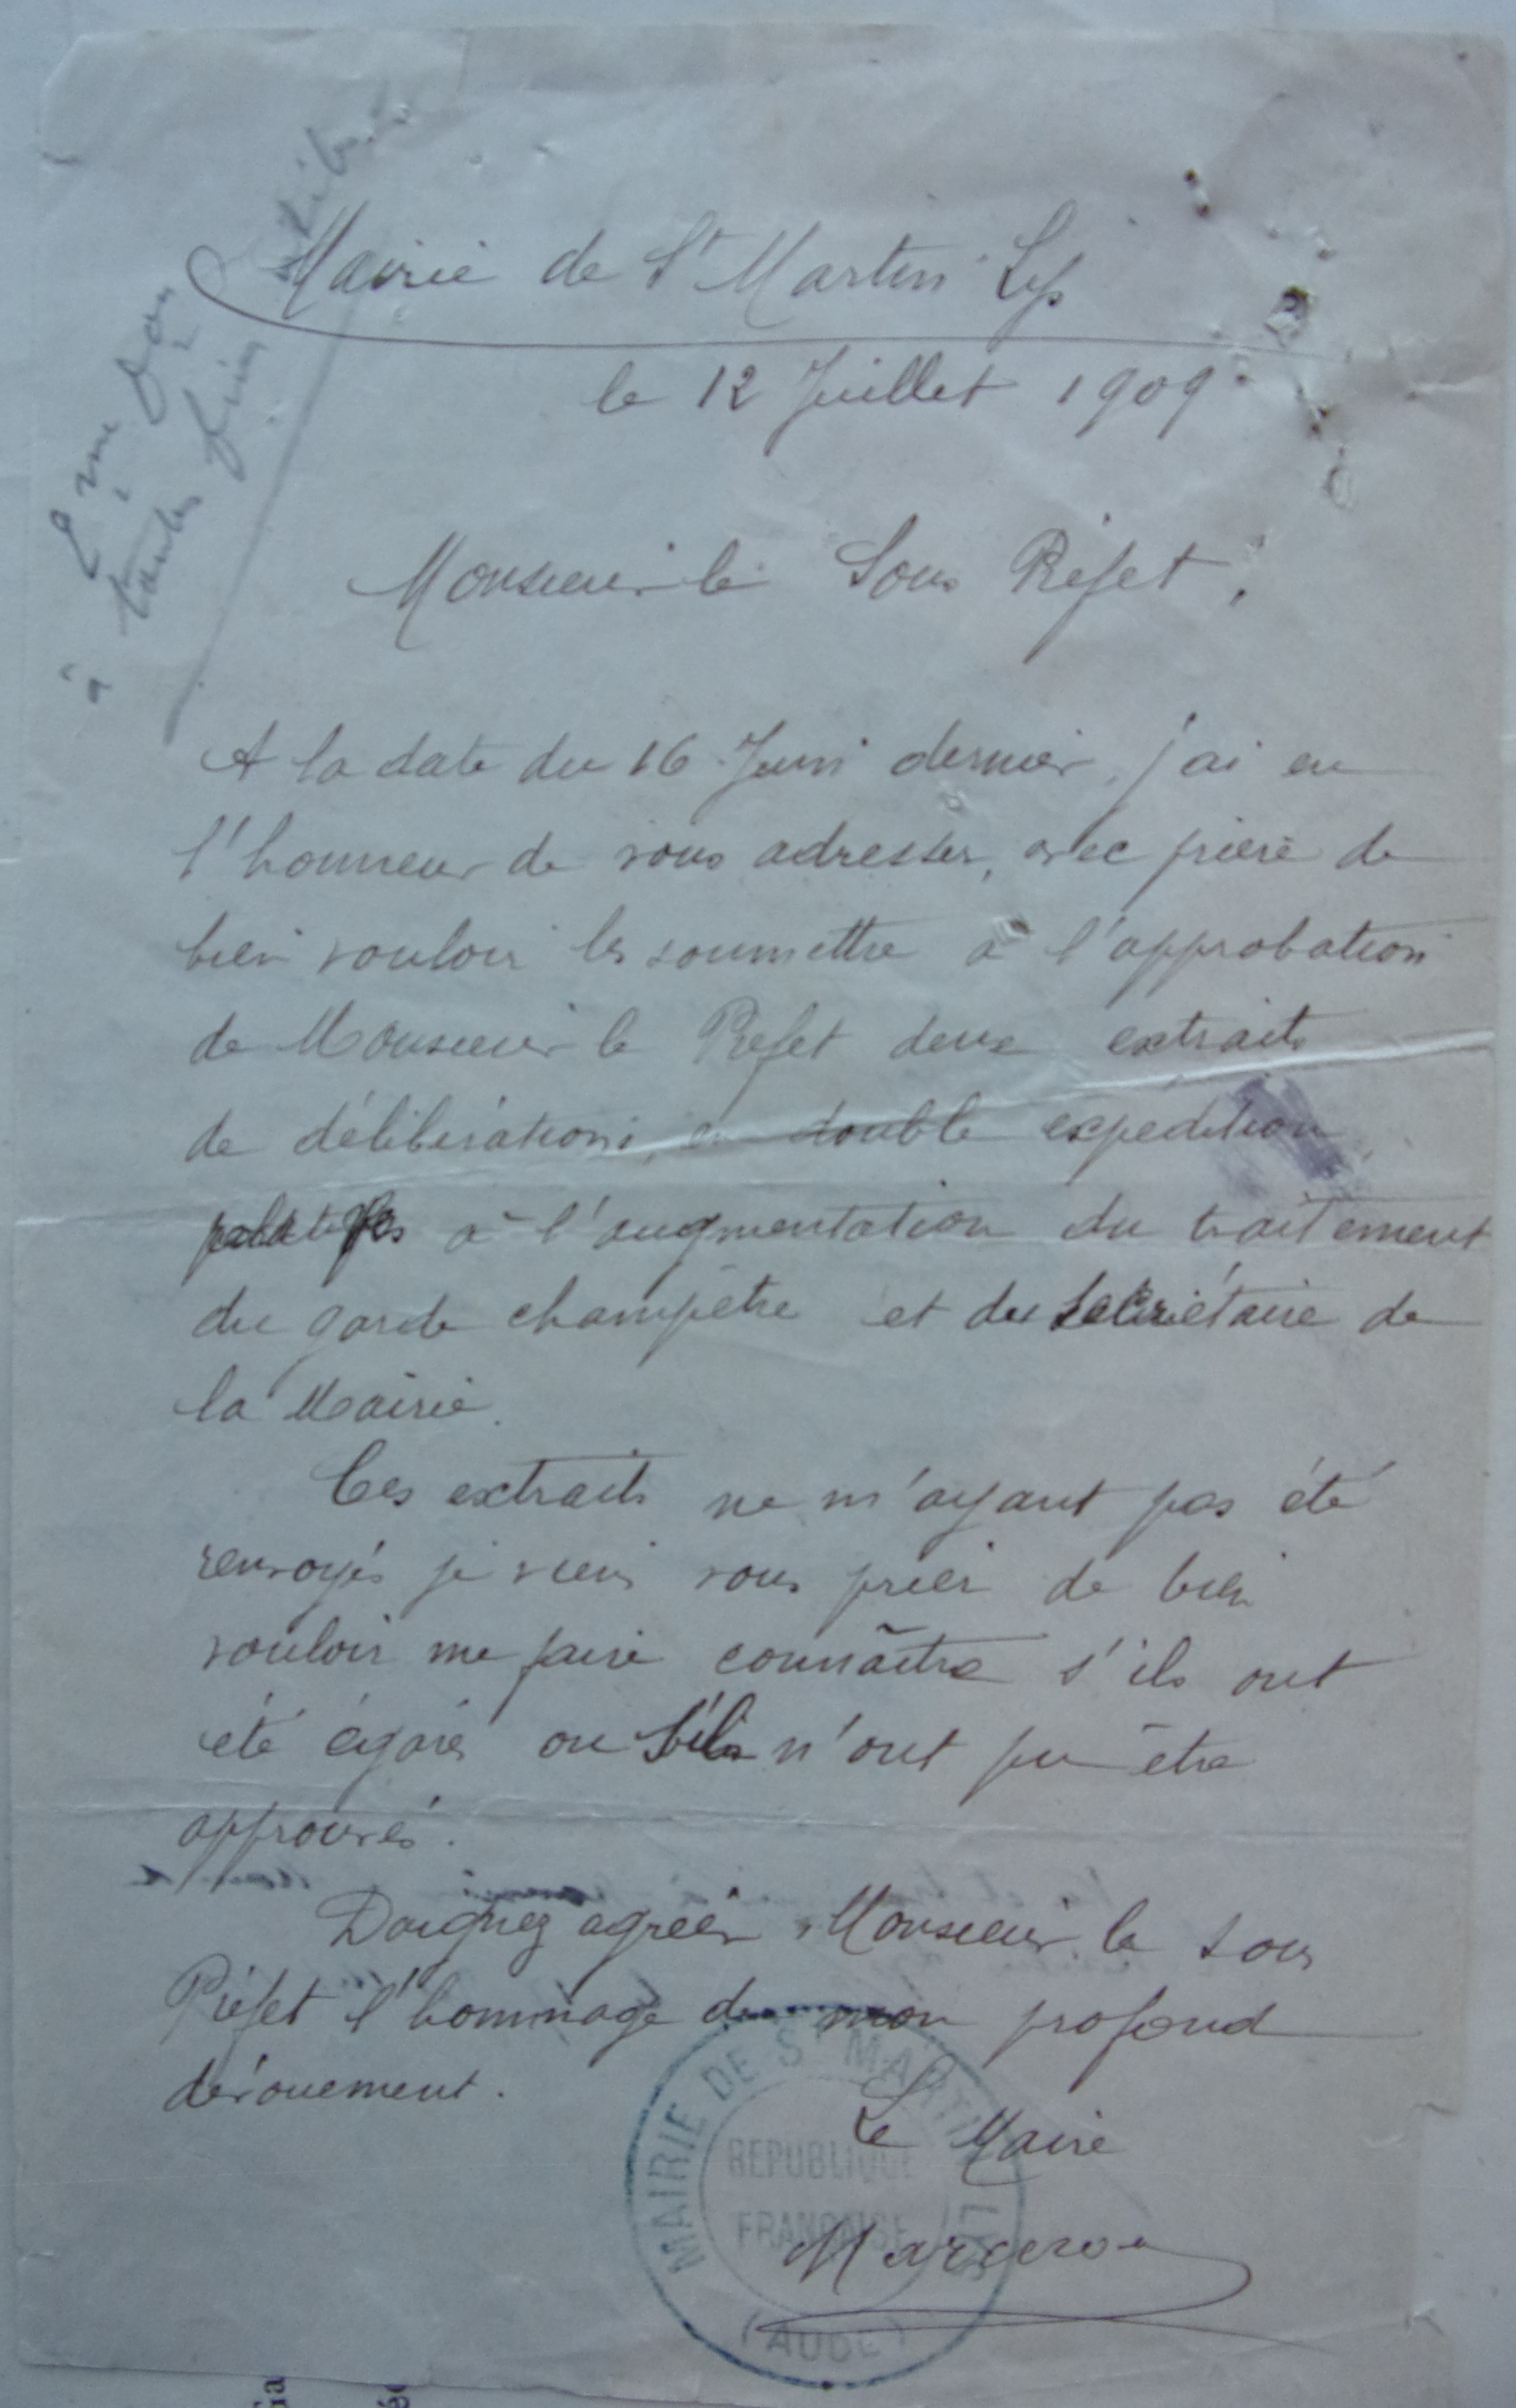 Mairie de St Martin Lys
le 12 Juillet 1909
Monsieur le Sous Préfet,
A la date du 16 Juin dernier, j'ai eu
l'honneur de vous adresser, avec prière de
bien vouloir les soumettre à l'approbation
de Monsieur le Préfet deux extraits
de délibérations, en double expédition,
relatifs à l'augmentation du traitement
du garde champêtre et du secrétaire de
la Mairie.
Ces extraits ne m'ayant pas été
renvoyés je viens vous prier de bien
vouloir me faire connaître s'ils ont
été égarés ou s'ils n'ont pu être
approuvés.
Daignez agréer, Monsieur le Sous
Préfet l'hommage de mon profond
dévouement.
Le Maire
MAIRIE DE ST MARTIN LYS
REPUBLIQUE
FRANÇAISE
(AUDE)
à toutes fins